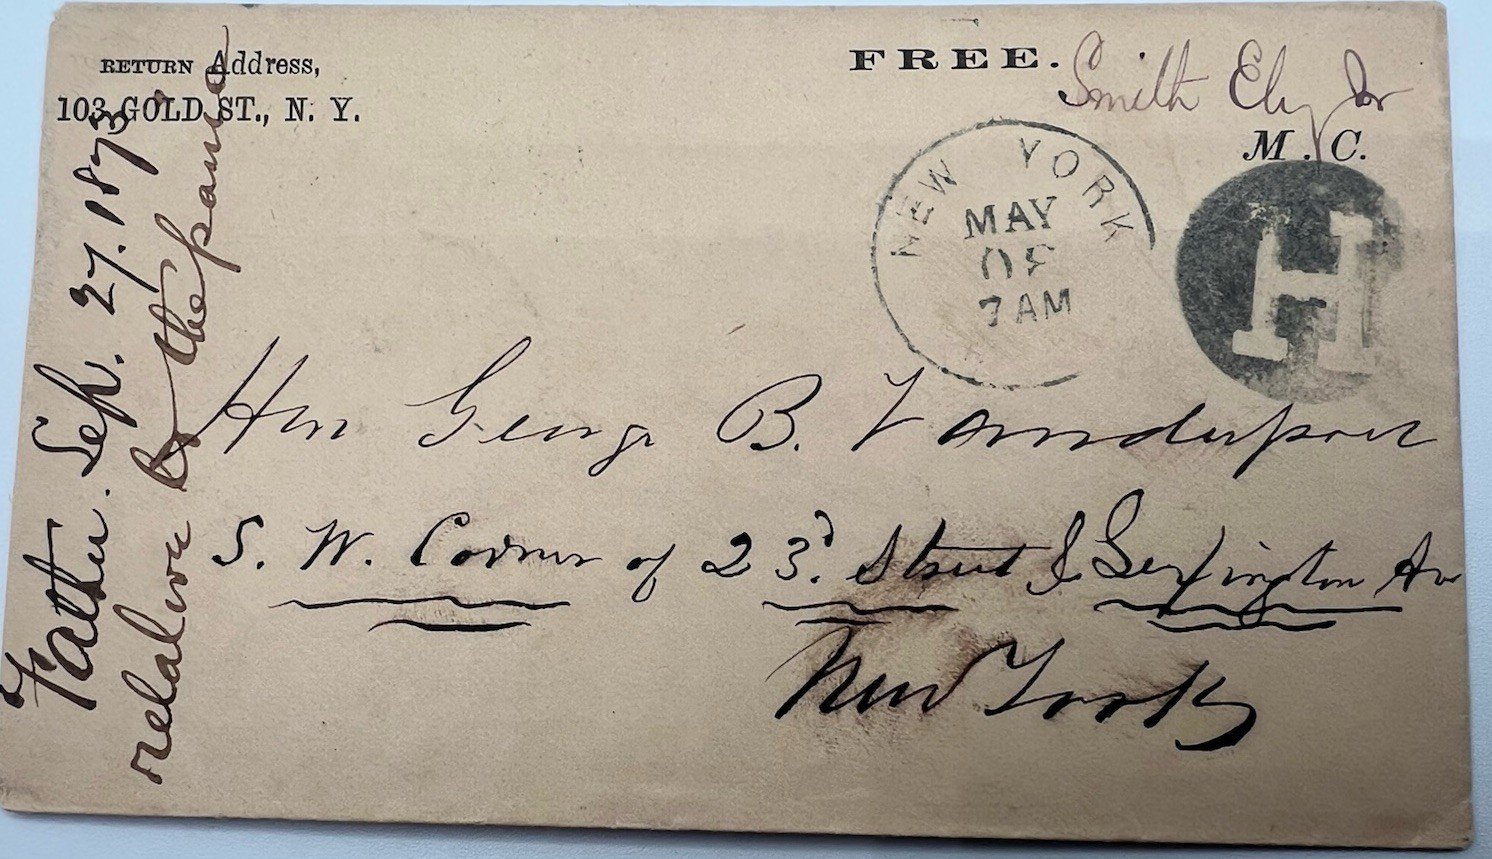 RETURN Address,
103 GOLD ST., N. Y.
FREE.
Smith Ely Jr
M. C.
NEW YORK
MAY
7 AM
H
Hon George B. Vanderpoel
S. W. Corner of 23d. Street & Lexington Av
New York
Father. Sep. 27. 1873
relative to the